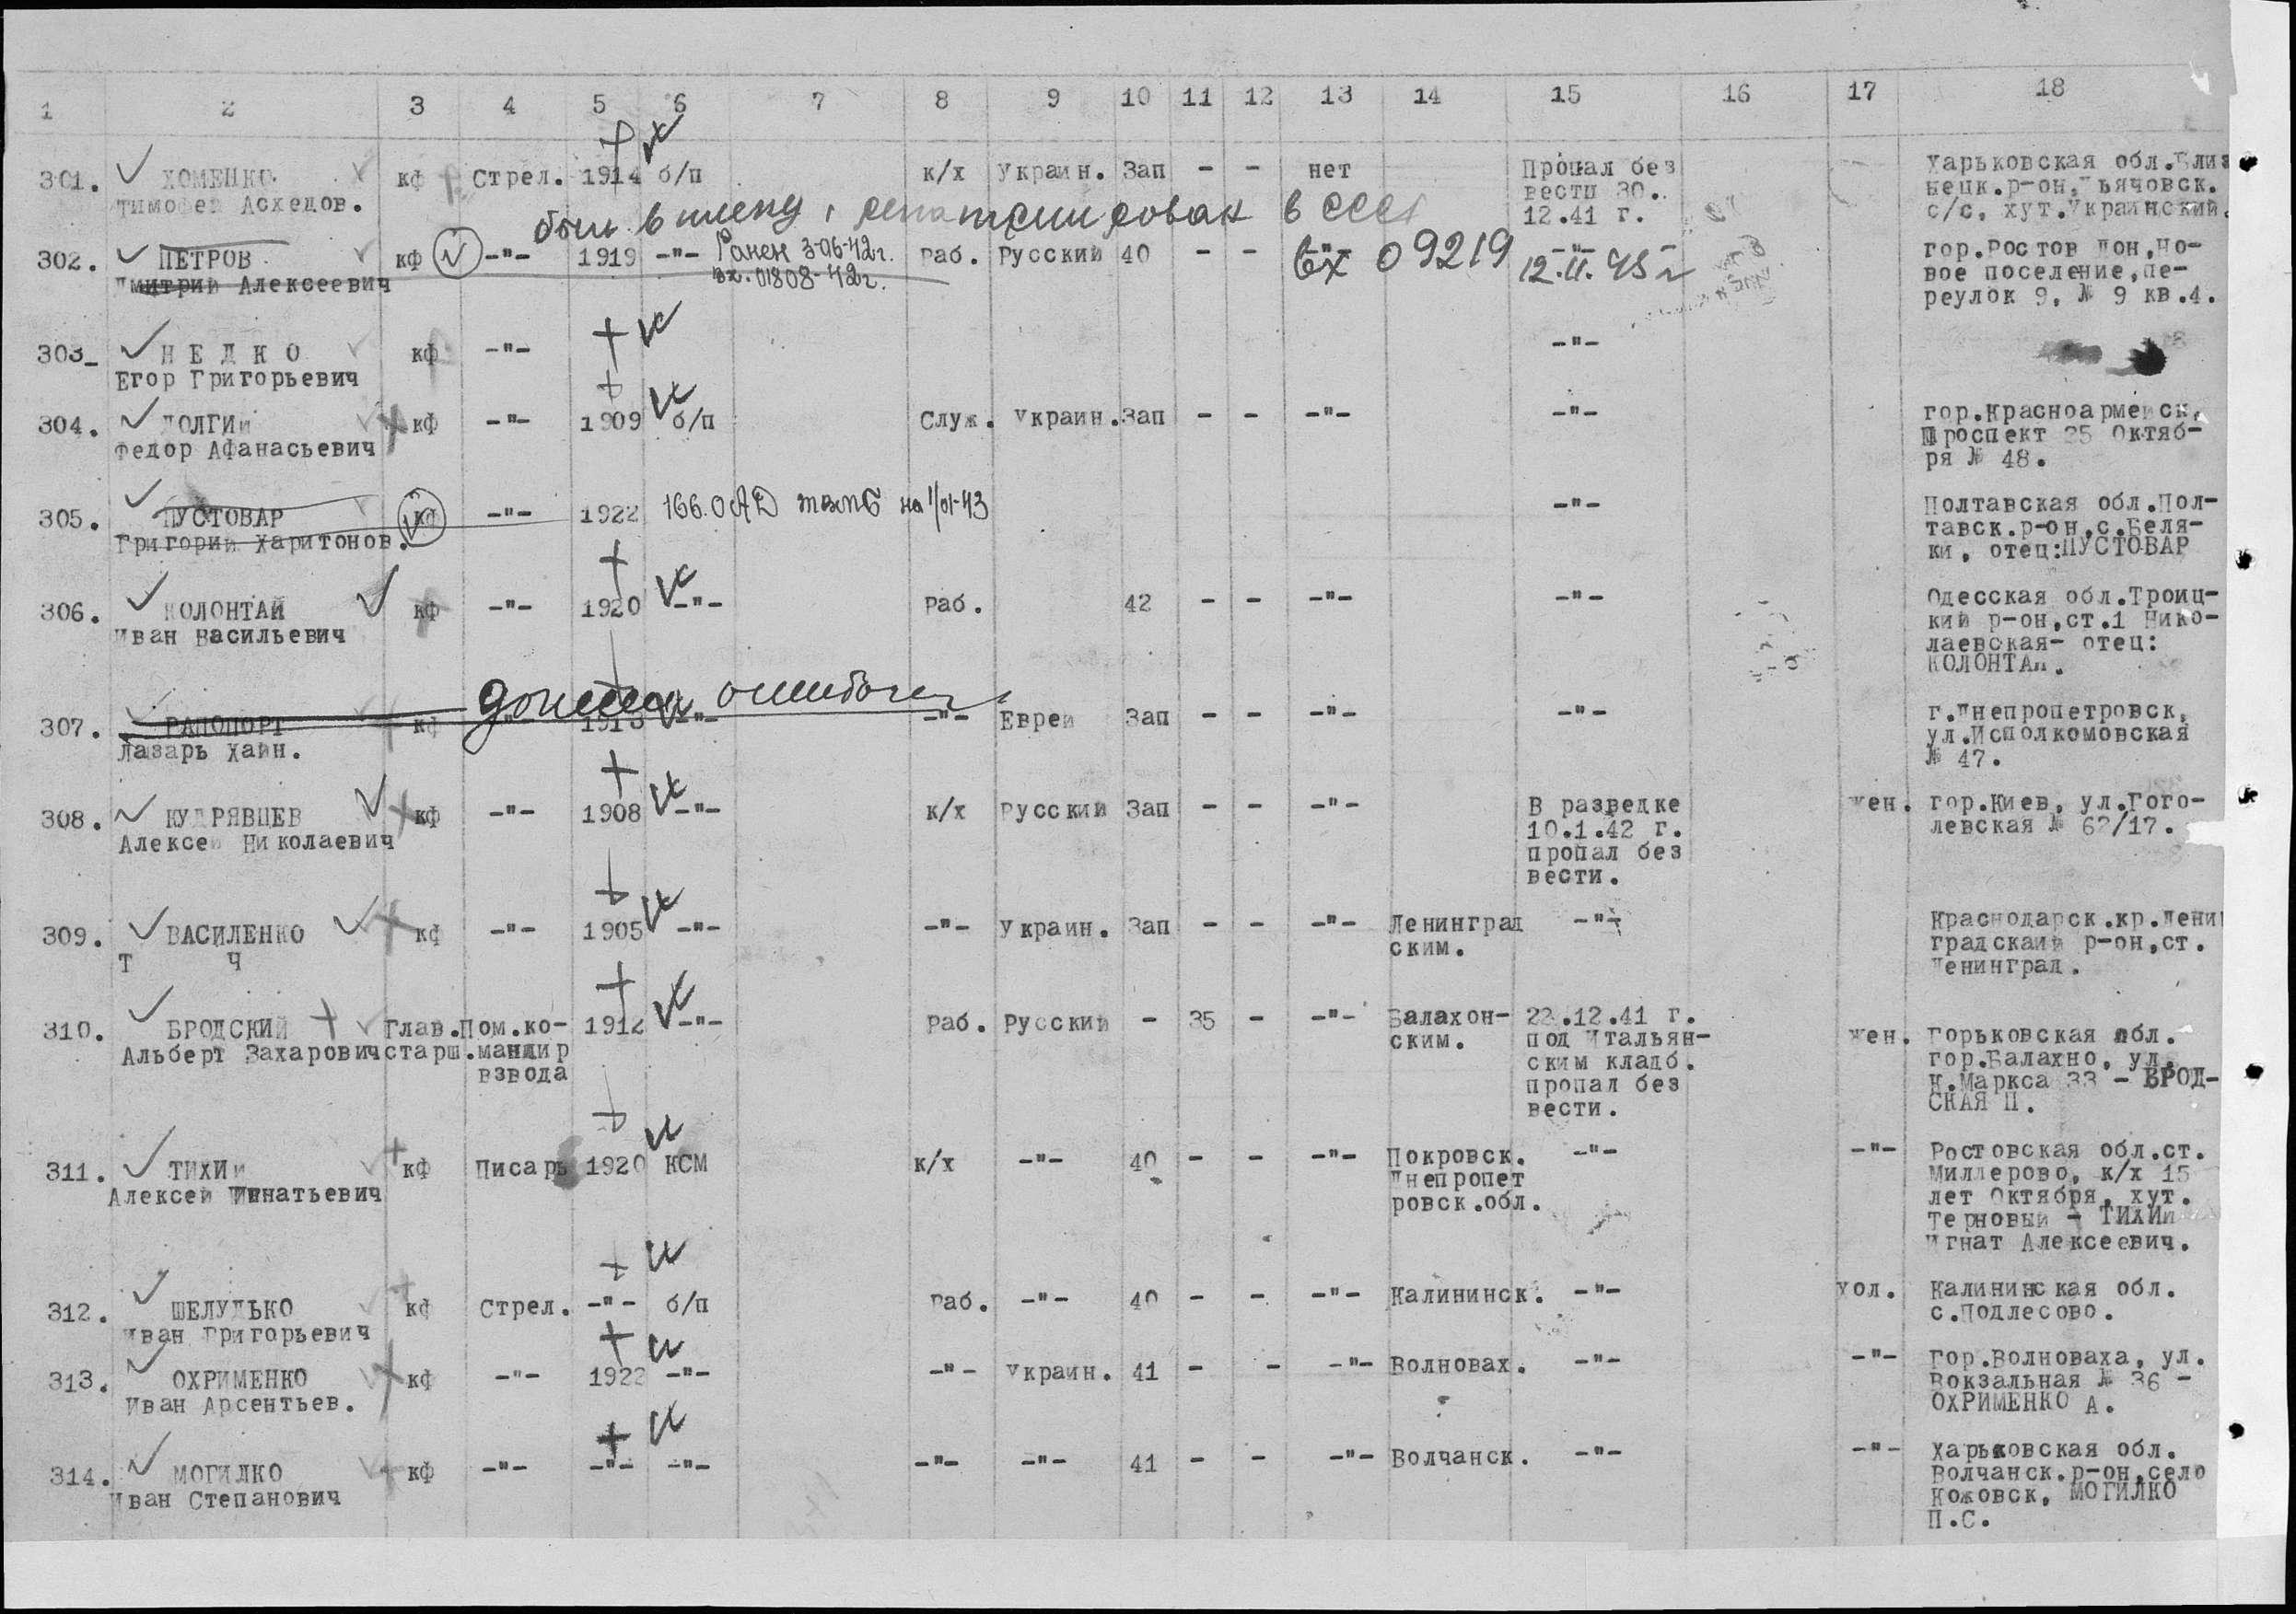 1 2 3 4 5 6 7 8 9 10 11 12 13 14 15 16 17 18
301. ХОМЕНКО кф Стрел. 1914 б/п к/х Украин. Зап - - нет Пропал без Харьковская обл.Близ
Тимофей Аскедов. вести 30. нецк.р-он,
12.41 г. с/с, хут.Украинский.
был в плену, репатриирован в СССР
302. ПЕТРОВ кф -"- 1919 -"- Ранен 3-06-42г. Раб. Русский 40 - - -"- вх 09219 -"- гор.Ростов Дон,Но-
Дмитрий Алексеевич вх.01808-42г. 12.II.45г вое поселение,пе-
реулок 9, № 9 кв.4.
303_ НЕДКО кф -"- -"-
Егор Григорьевич
304. ДОЛГИЙ кф -"- 1909 б/п Служ. Украин. Зап - - -"- -"- гор.Красноармейск,
Федор Афанасьевич проспект 25 Октяб-
ря № 48.
305. ПУСТОВАР кф -"- 1922 166.ОАД на 1/01-43 -"- Полтавская обл.Пол-
Григорий Харитонов. тавск.р-он,с.Беля-
ки, отец:ПУСТОВАР
306. КОЛОНТАЙ кф -"- 1920 -"- Раб. 42 - - -"- -"- Одесская обл.Троиц-
Иван Васильевич кий р-он,ст.1 Нико-
лаевская- отец:
КОЛОНТАЙ.
307. РАПОПОРТ кф -"- -"- -"- Еврей Зап - - -"- -"- г.Днепропетровск,
Лазарь Хаин. ул.Исполкомовская
№ 47.
308. КУДРЯВЦЕВ кф -"- 1908 -"- к/х Русский Зап - - -"- В разведке жен. гор.Киев, ул.Гого-
Алексей Николаевич 10.1.42 г. левская № 62/17.
пропал без
вести.
309. ВАСИЛЕНКО кф -"- 1905 -"- -"- Украин. Зап - - -"- Ленинград -"- Краснодарск.кр.Лени
Т Ч ским. градскаий р-он,ст.
Ленинград.
310. БРОДСКИЙ Глав. Пом.ко- 1912 -"- Раб. Русский - 35 - -"- Балахон- 22.12.41 г. жен. Горьковская обл.
Альберт Захарович старш. мандир ским. под Итальян- гор.Балахно, ул.
взвода ским кладб. К.Маркса 33 - БРОД-
пропал без СКАЯ П.
вести.
311. ТИХИЙ кф Писарь 1920 КСМ к/х -"- 40 - - -"- Покровск. -"- -"- Ростовская обл.ст.
Алексей Игнатьевич Днепропет Миллерово, к/х 15
ровск.обл. лет Октября, хут.
Терновый - ТИХИЙ
Игнат Алексеевич.
312. ШЕЛУДЬКО кф Стрел. -"- б/п Раб. -"- 40 - - -"- Калининск. -"- хол. Калининская обл.
Иван Григорьевич с.Подлесово.
313. ОХРИМЕНКО кф -"- 1922 -"- -"- Украин. 41 - - -"- Волновах. -"- -"- гор.Волноваха, ул.
Иван Арсентьев. Вокзальная № 36 -
ОХРИМЕНКО А.
314. МОГИЛКО кф -"- -"- -"- -"- -"- 41 - - -"- Волчанск. -"- -"- Харьковская обл.
Иван Степанович Волчанск.р-он,село
Кожовск, МОГИЛКО
П.С.